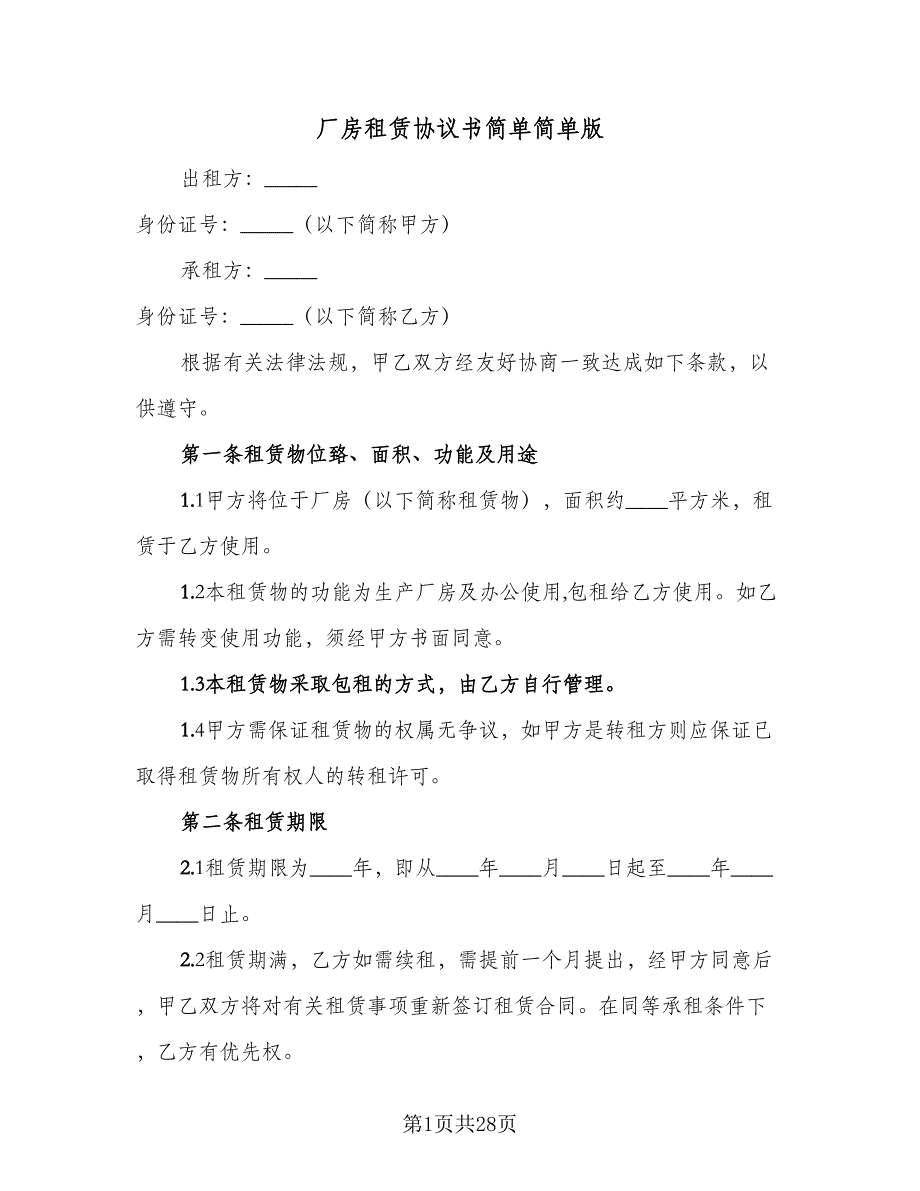 厂房租赁协议书简单简单版
出租方：_____
身份证号：_____（以下简称甲方）
承租方：_____
身份证号：_____（以下简称乙方）
根据有关法律法规，甲乙双方经友好协商一致达成如下条款，以
供遵守。
第一条租赁物位臵、面积、功能及用途
1.1甲方将位于厂房（以下简称租赁物），面积约____平方米，租
赁于乙方使用。
1.2本租赁物的功能为生产厂房及办公使用,包租给乙方使用。如乙
方需转变使用功能，须经甲方书面同意。
1.3本租赁物采取包租的方式，由乙方自行管理。
1.4甲方需保证租赁物的权属无争议，如甲方是转租方则应保证已
取得租赁物所有权人的转租许可。
第二条租赁期限
2.1租赁期限为____年，即从____年____月____日起至____年____
月____日止。
2.2租赁期满，乙方如需续租，需提前一个月提出，经甲方同意后
，甲乙双方将对有关租赁事项重新签订租赁合同。在同等承租条件下
，乙方有优先权。
第1页共28页